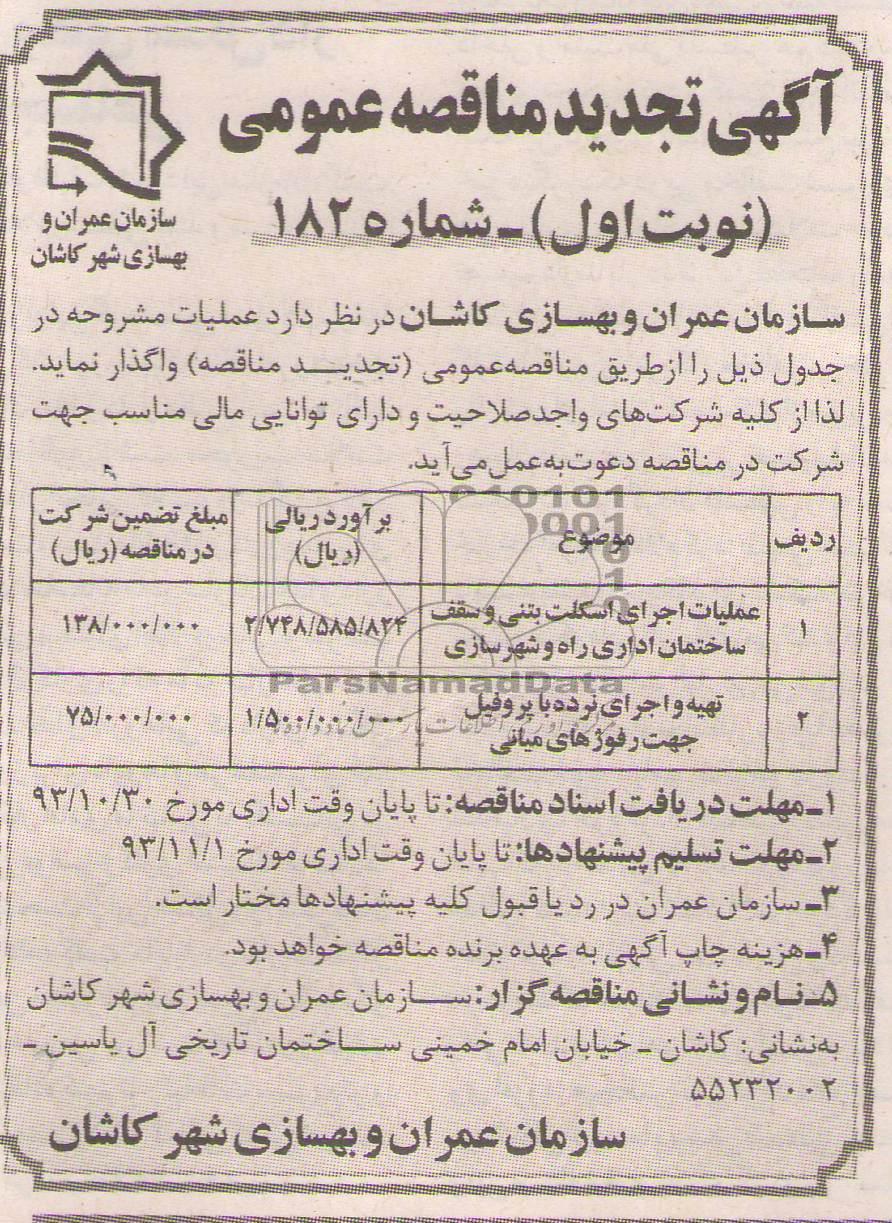 آگهی تجدید مناقصه عمومی
(نوبت اول) ـ شماره ۱۸۲
سازمان عمران و
بهسازی شهر کاشان
سازمان عمران و بهسازی کاشان در نظر دارد عملیات مشروحه در
جدول ذیل را ازطریق مناقصه‌عمومی (تجدید مناقصه) واگذار نماید.
لذا از کلیه شرکت‌های واجدصلاحیت و دارای توانایی مالی مناسب جهت
شرکت در مناقصه دعوت‌به‌عمل‌می‌آید.
ردیف موضوع برآورد ریالی (ریال) مبلغ تضمین شرکت در مناقصه (ریال)
۱ عملیات اجرای اسکلت بتنی و سقف ۲/۷۴۸/۵۸۵/۸۲۴ ۱۳۸/۰۰۰/۰۰۰
ساختمان اداری راه و شهرسازی
ParsNamadData
۲ تهیه و اجرای نرده با پروفیل ۱/۵۰۰/۰۰۰/۰۰۰ ۷۵/۰۰۰/۰۰۰
جهت رفوژهای میانی
۱ـ مهلت دریافت اسناد مناقصه: تا پایان وقت اداری مورخ ۹۳/۱۰/۳۰
۲ـ مهلت تسلیم پیشنهادها: تا پایان وقت اداری مورخ ۹۳/۱۱/۱
۳ـ سازمان عمران در رد یا قبول کلیه پیشنهادها مختار است.
۴ـ هزینه چاپ آگهی به عهده برنده مناقصه خواهد بود.
۵ـ نام و نشانی مناقصه گزار: سازمان عمران و بهسازی شهر کاشان
به‌نشانی: کاشان ـ خیابان امام خمینی ساختمان تاریخی آل یاسین ـ
۵۵۲۳۲۰۰۲
سازمان عمران و بهسازی شهر کاشان